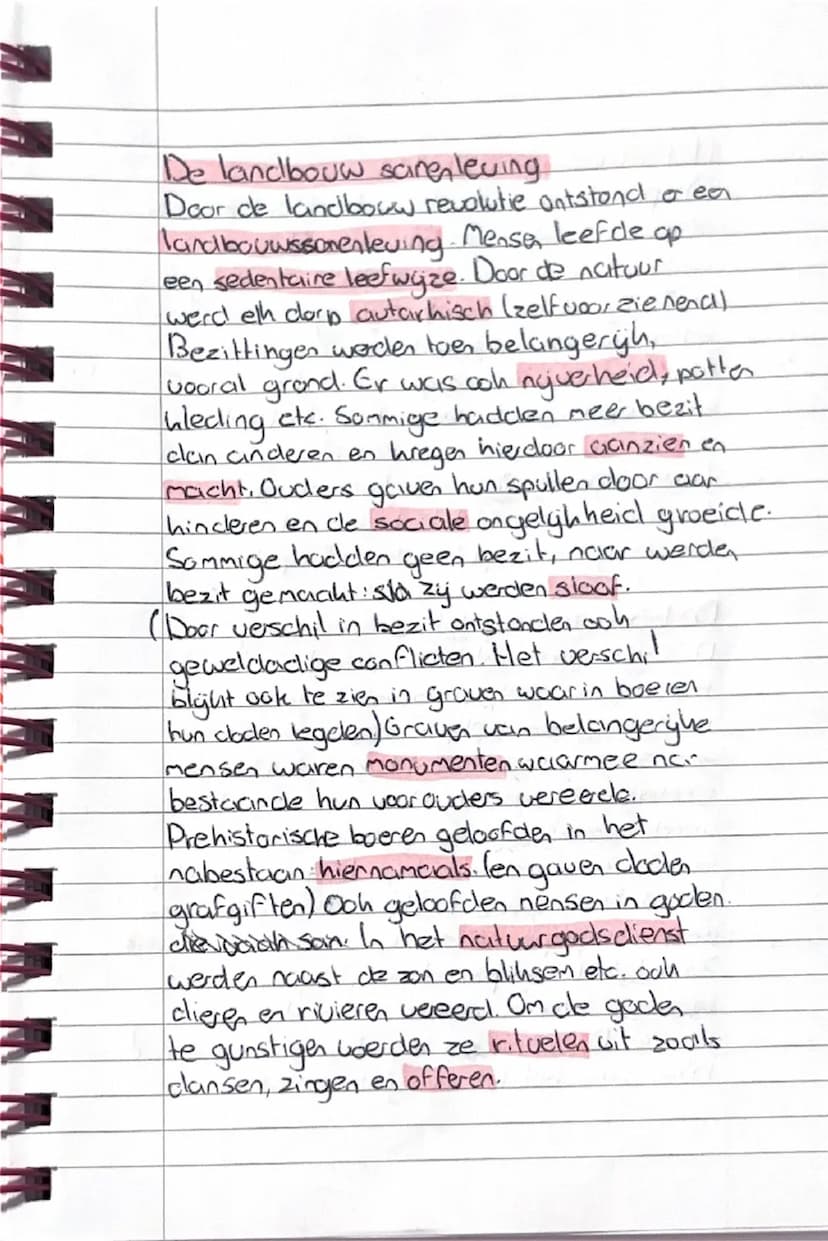 De landbouw samenleving
Door de landbouw revolutie ontstond er een
landbouwssamenleving. Mensen leefde op
een sedentaire leefwijze. Door de natuur
werd elk dorp autarkisch (zelfvoorzienend)
Bezittingen werden toen belangerijk,
vooral grond. Er was ook nijverheid, potten
kleding etc. Sommige hadden meer bezit
dan anderen en kregen hierdoor aanzien en
macht. Ouders gaven hun spullen door aar
kinderen en de sociale ongelijkheid groeide.
Sommige hadden geen bezit, maar werden
bezit gemaakt: zij werden slaaf.
(Door verschil in bezit ontstonden ook
gewelddadige conflicten. Het verschil
blijkt ook te zien in graven waarin boeren
hun doden legden) Graven van belangerijke
mensen waren monumenten waarmee
bestaande hun voorouders vereerde.
Prehistorische boeren geloofden in het
nabestaan: hiernamaals. (en gaven doden
grafgiften) Ook geloofden mensen in goden.
In het natuurgodsdienst
werden naast de zon en bliksem etc. ook
dieren en rivieren vereerd. Om de goden
te gunstigen voerden ze rituelen uit zoals
dansen, zingen en offeren.